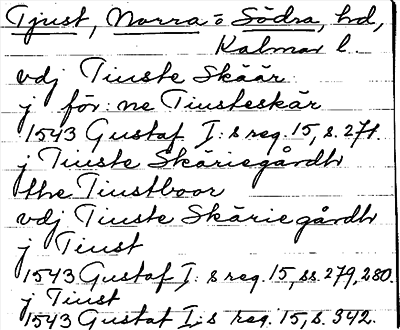 Tjust, Norra o Södra, hd,
Kalmar l.
vdj Tiuste Skäär
j för:ne Tiusteskär
1543 Gustaf I:s reg. 15, s. 271.
j Tiuste Skäriegårdh
the Tiustboor
vdj Tiuste Skäriegårdh
j Tiust
1543 Gustaf I:s reg. 15, ss. 279, 280.
j Tiust
1543 Gustaf I:s reg. 15, s. 342.